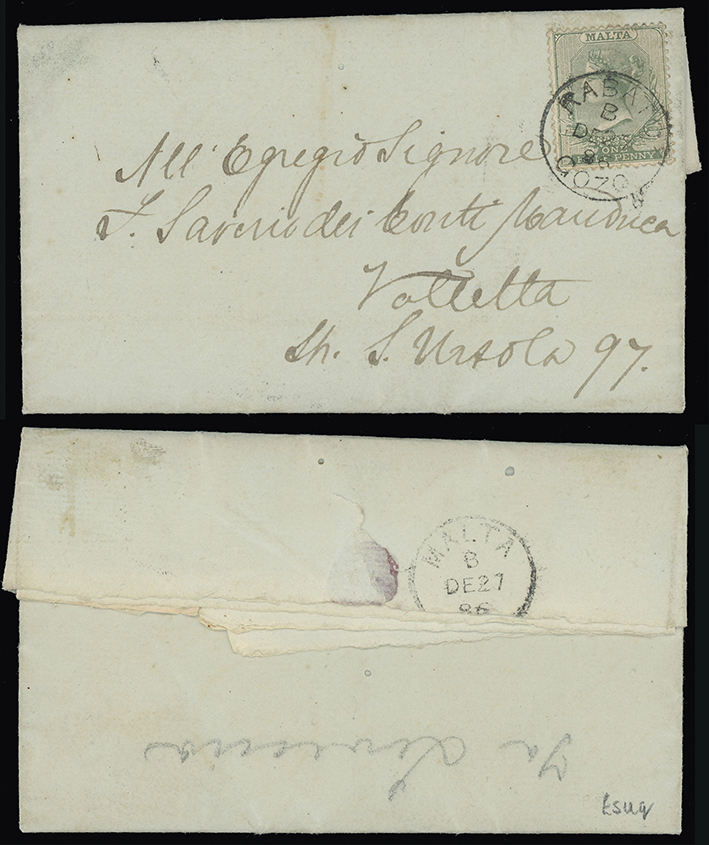 MALTA
HALF PENNY
RABATO
B
DE 27
86
GOZO
All' Egregio Signore
F. Saverio dei Conti Manduca
Valletta
Sh. S. Ursola 97.
MALTA
B
DE 27
86
Esuq